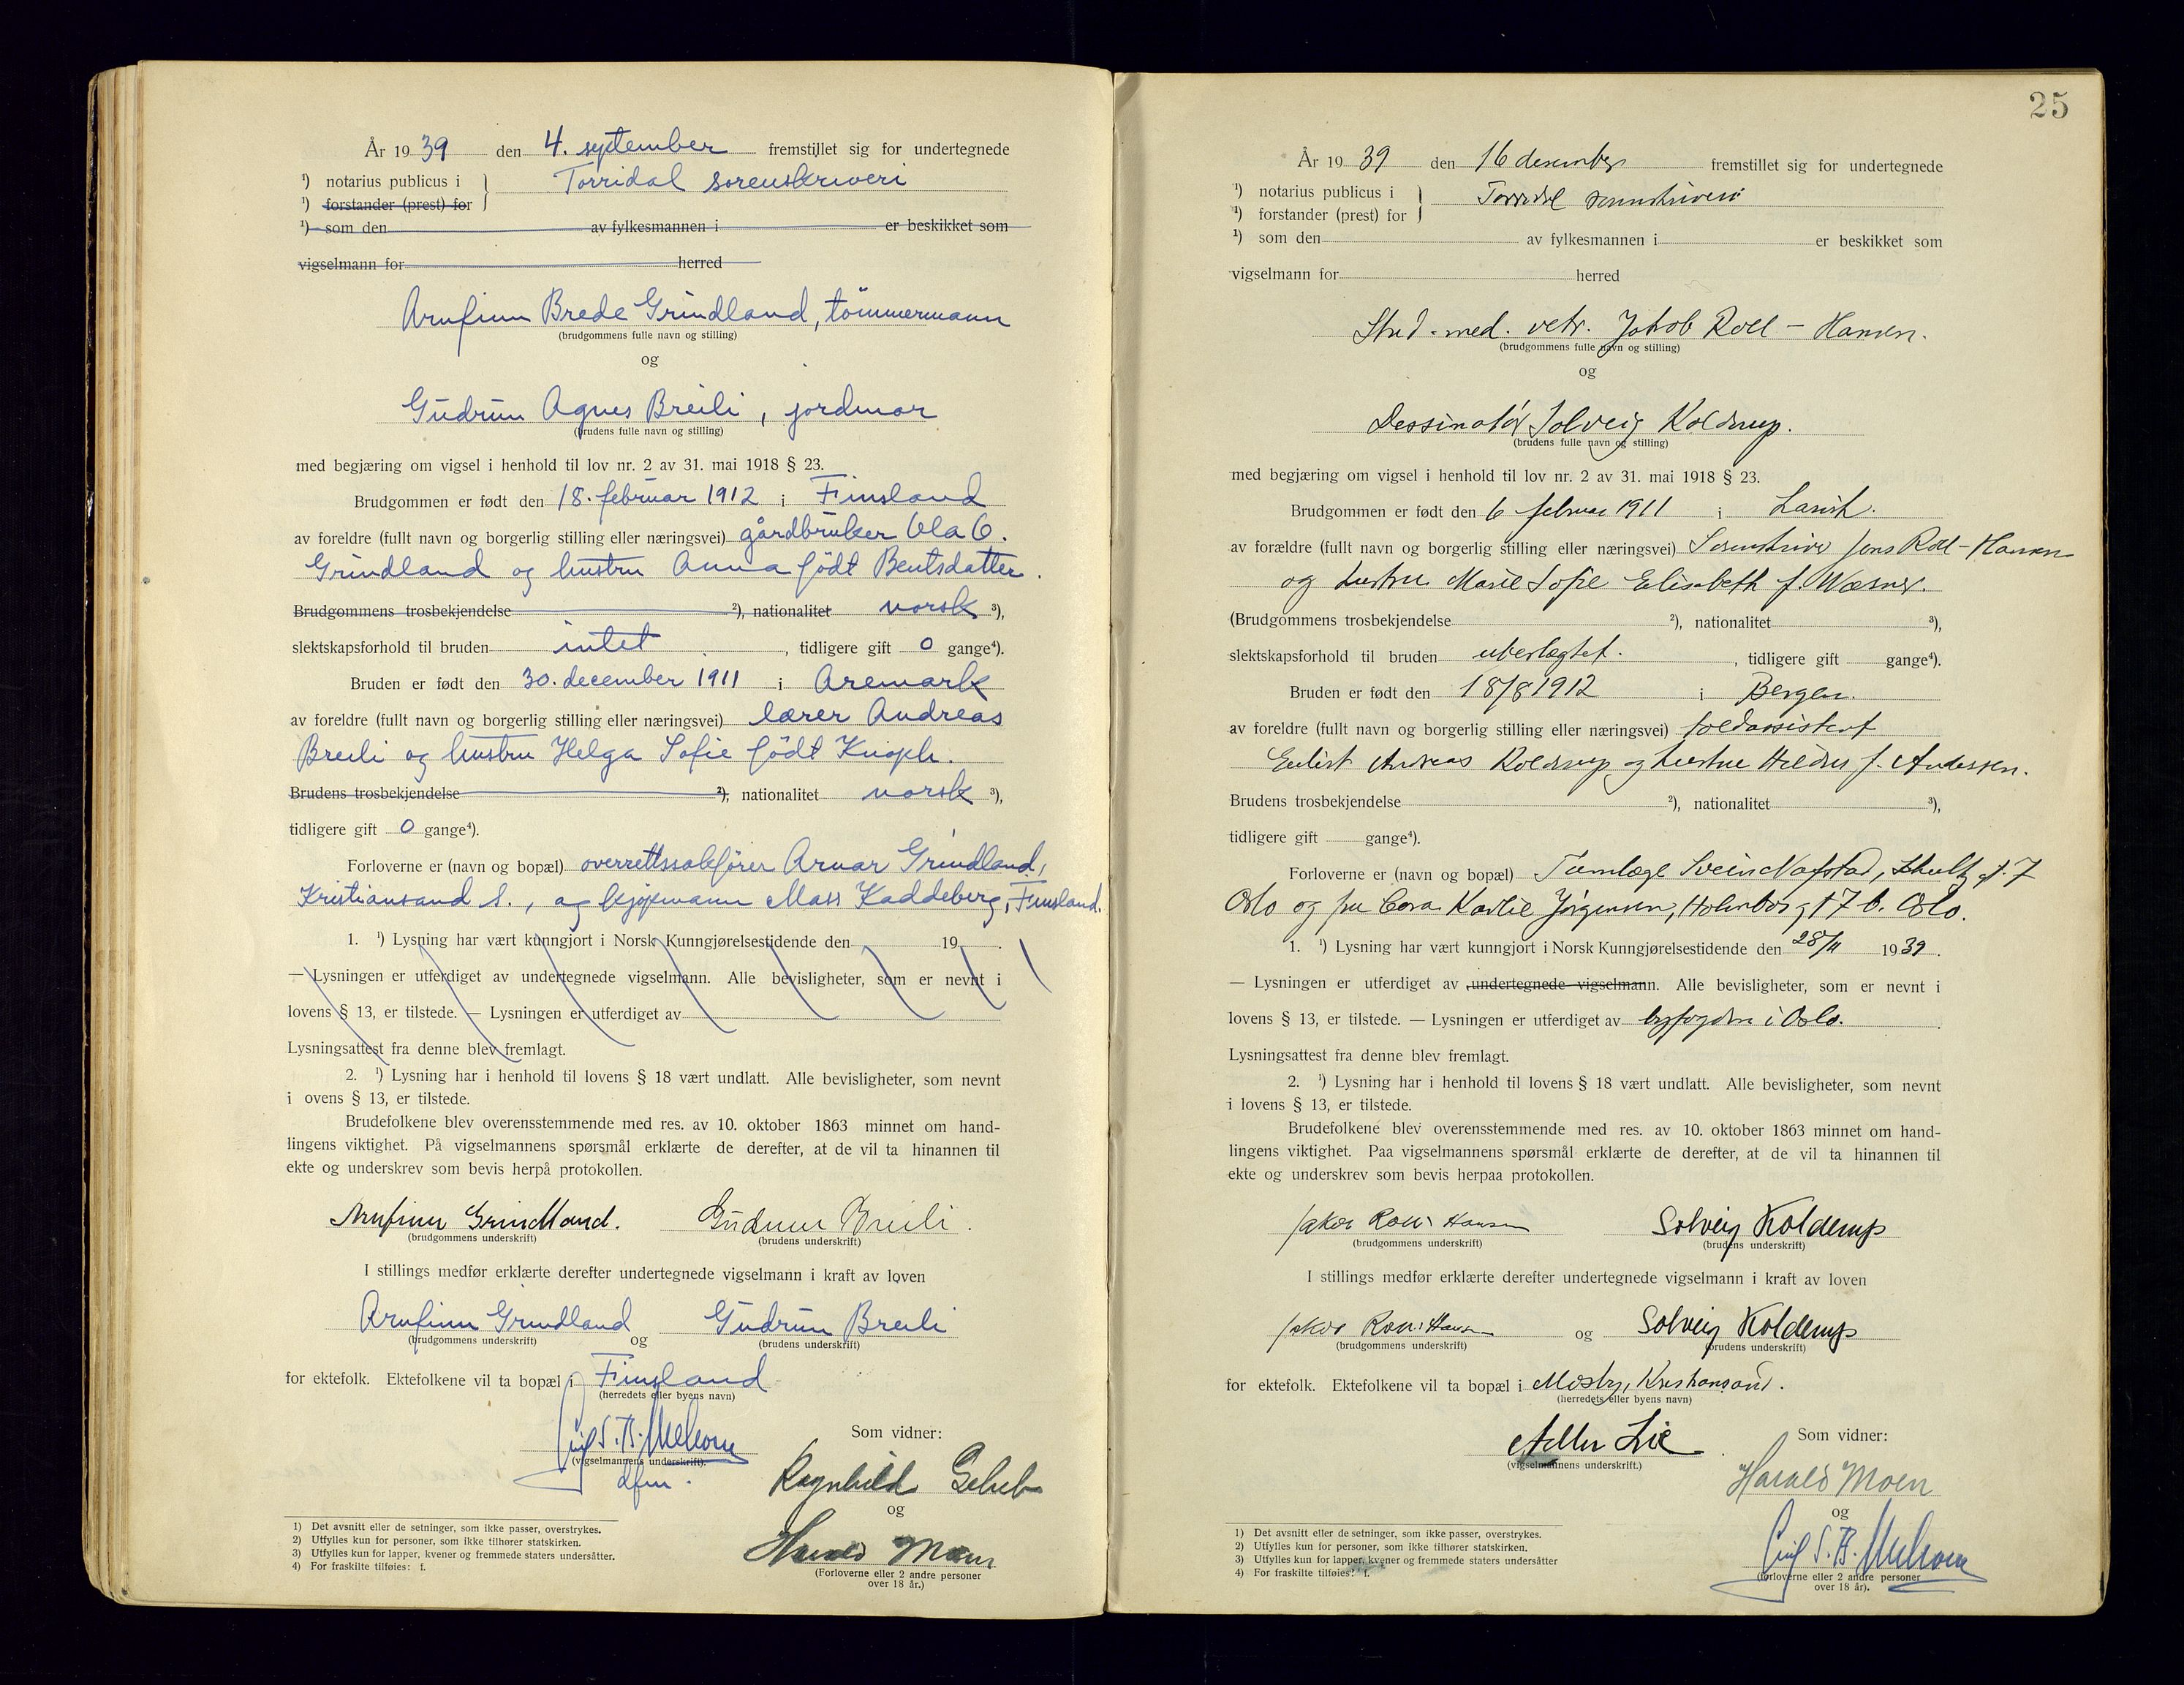 År 19 39 den 4. september fremstillet sig for undertegnede
¹) notarius publicus i } Torridal sorenskriveri
¹) forstander (prest) for
¹) som den av fylkesmannen i er beskikket som
vigselmann for herred
Arnfinn Brede Grindland, tömmermann
(brudgommens fulle navn og stilling)
og
Gudrun Agnes Breili, jordmor
(brudens fulle navn og stilling)
med begjæring om vigsel i henhold til lov nr. 2 av 31. mai 1918 § 23.
Brudgommen er født den 18. februar 1912 i Finsland
av foreldre (fullt navn og borgerlig stilling eller næringsvei) gårdbruker Ola O.
Grindland og hustru Anna födt Bentsdatter.
Brudgommens trosbekjendelse ²), nationalitet norsk ³),
slektskapsforhold til bruden intet, tidligere gift 0 gange⁴).
Bruden er født den 30. december 1911 i Aremark
av foreldre (fullt navn og borgerlig stilling eller næringsvei) lærer Andreas
Breili og hustru Helga Sofie födt Knoph.
Brudens trosbekjendelse ²), nationalitet norsk ³),
tidligere gift 0 gange⁴).
Forloverne er (navn og bopæl) overrettssakförer Arnar Grindland,
Kristiansand S., og kjöpmann Mass Kaddeberg, Finsland.
1. ¹) Lysning har vært kunngjort i Norsk Kunngjørelsestidende den 19 .
— Lysningen er utferdiget av undertegnede vigselmann. Alle bevisligheter, som er nevnt i
lovens § 13, er tilstede. — Lysningen er utferdiget av
Lysningsattest fra denne blev fremlagt.
2. ¹) Lysning har i henhold til lovens § 18 vært undlatt. Alle bevisligheter, som nevnt
i ovens § 13, er tilstede.
Brudefolkene blev overensstemmende med res. av 10. oktober 1863 minnet om hand-
lingens viktighet. På vigselmannens spørsmål erklærte de derefter, at de vil ta hinannen til
ekte og underskrev som bevis herpå protokollen.
Arnfinn Grindland. Gudrun Breili.
(brudgommens underskrift) (brudens underskrift)
I stillings medfør erklærte derefter undertegnede vigselmann i kraft av loven
Arnfinn Grindland og Gudrun Breili
(brudgommens underskrift) (brudens underskrift)
for ektefolk. Ektefolkene vil ta bopæl i Finsland
(herredets eller byens navn)
S. B. Melsom
(vigselmannens underskrift).
dfm.
Som vidner:
Ragnhild
og
Harald Moen
(Forloverne eller 2 andre personer
over 18 år.)
1) Det avsnitt eller de setninger, som ikke passer, overstrykes.
2) Utfylles kun for personer, som ikke tilhører statskirken.
3) Utfylles kun for lapper, kvener og fremmede staters undersåtter.
4) For fraskilte tilføies: f.
25
År 19 39 den 16 desember fremstillet sig for undertegnede
¹) notarius publicus i } Torridal sorenskriveri
¹) forstander (prest) for
¹) som den av fylkesmannen i er beskikket som
vigselmann for herred
Stud. med. vetr. Jakob Roll-Hansen.
(brudgommens fulle navn og stilling)
og
Dessinatør Solveig Kolderup.
(brudens fulle navn og stilling)
med begjæring om vigsel i henhold til lov nr. 2 av 31. mai 1918 § 23.
Brudgommen er født den 6 februar 1911 i Larvik.
av forældre (fullt navn og borgerlig stilling eller næringsvei) Sorenskriver Jens Roll-Hansen
og hustru Marie Sofie Elisabeth f. Wæsner.
(Brudgommens trosbekjendelse ²), nationalitet ³),
slektskapsforhold til bruden ubeslægtet., tidligere gift gange⁴).
Bruden er født den 18/8 1912 i Bergen.
av foreldre (fullt navn og borgerlig stilling eller næringsvei) tolldassistent
Andreas Kolderup og hustru f. Andersen.
Brudens trosbekjendelse ²), nationalitet ³),
tidligere gift gange⁴).
Forloverne er (navn og bopæl) Tannlæge Svein Nafstad, Schultz gt. 7
Oslo og fru Cora Kavlie Jørgensen, Holmbos gt 7 b. Oslo.
1. ¹) Lysning har vært kunngjort i Norsk Kunngjørelsestidende den 28/11 1939.
— Lysningen er utferdiget av undertegnede vigselmann. Alle bevisligheter, som er nevnt i
lovens § 13, er tilstede. — Lysningen er utferdiget av byfogden i Oslo.
Lysningsattest fra denne blev fremlagt.
2. ¹) Lysning har i henhold til lovens § 18 vært undlatt. Alle bevisligheter, som nevnt
i lovens § 13, er tilstede.
Brudefolkene blev overensstemmende med res. av 10. oktober 1863 minnet om hand-
lingens viktighet. Paa vigselmannens spørsmål erklærte de derefter, at de vil ta hinannen til
ekte og underskrev som bevis herpaa protokollen.
Jakob Roll-Hansen Solveig Kolderup
(brudgommens underskrift) (brudens underskrift)
I stillings medfør erklærte derefter undertegnede vigselmann i kraft av loven
Jakob Roll-Hansen og Solveig Kolderup
(brudgommens underskrift) (brudens underskrift)
for ektefolk. Ektefolkene vil ta bopæl i Mosby, Kristiansand.
(herredets eller byens navn)
Adler Lie
(vigselmannens underskrift.)
Som vidner:
Harald Moen
og
S. B. Melsom
(forloverne eller 2 andre personer
over 18 år).
1) Det avsnitt eller de setninger, som ikke passer, overstrykes.
2) Utfylles kun for personer, som ikke tilhører statskirken.
3) Utfylles kun for lapper, kvener og fremmede staters undersåtter
4) For fraskilte tilføies: f.